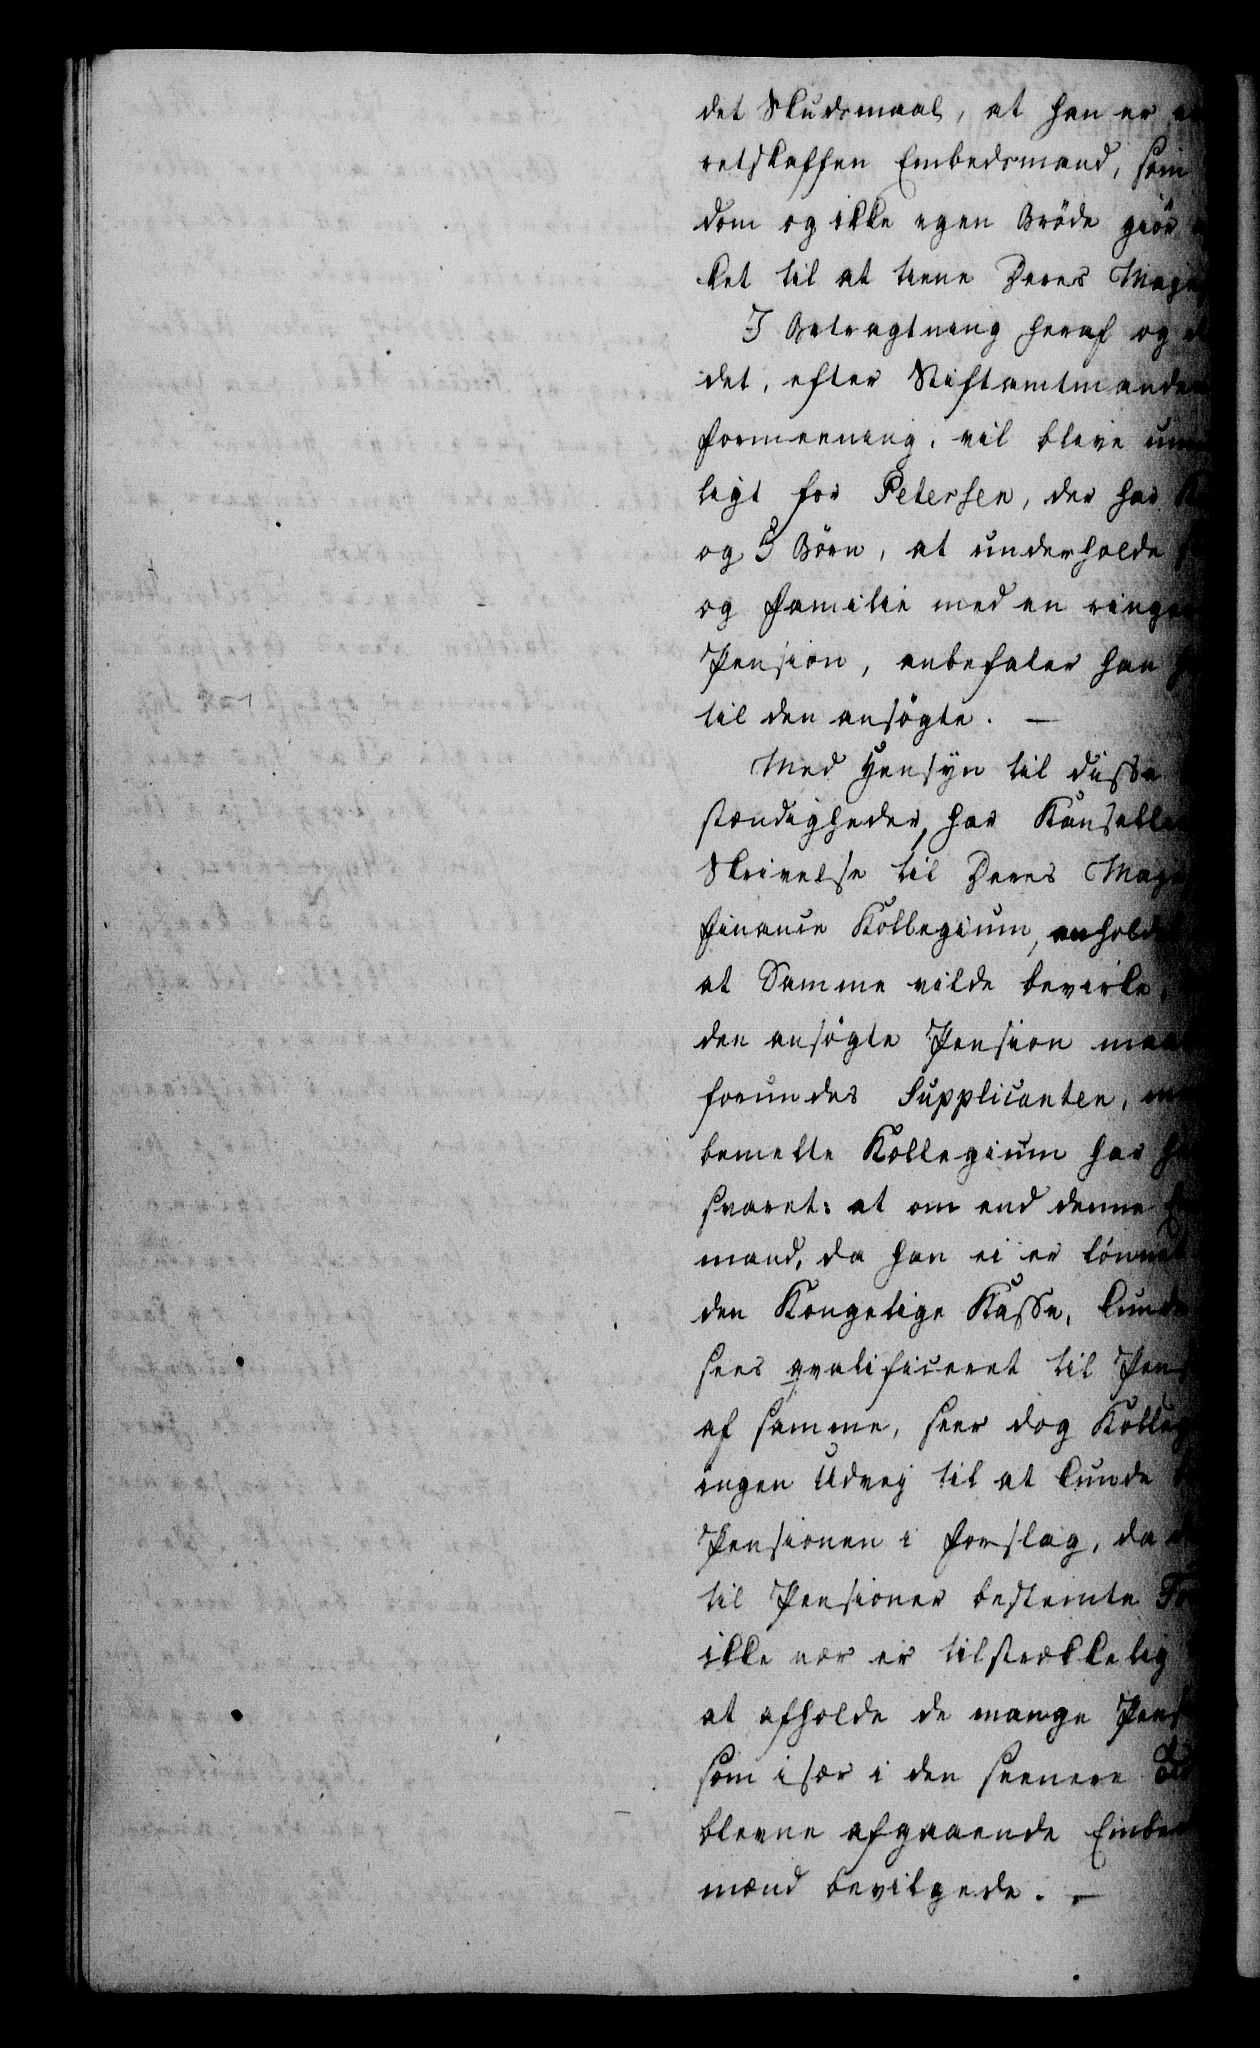 det Skudsmaal, at han er
retskaffen Embedsmand, som
dom og ikke egen Bröde giör
ket til at tiene Deres Maje
I Betragtning heraf og
det, efter Stiftamtmanden
formeening, vil blive um
ligt for Petersen, der har K
og 5 Börn, at underholde
og Familie med en ringe
Pension, anbefaler han
til den ansögte. —
Med Hensyn til disse
stændigheder, har Kanselli
Skrivelse til Deres Maje
Finance Kollegium, anholdt
at Samme vilde bevirke,
den ansögte Pension maa
forundes Supplicanten, m
bemelte Kollegium har h
svaret: at om end denne E
mand, da han ei er lönnet
den Kongelige Kasse, kunde
sees qvalificeret til Pens
af samme, seer dog Kolleg
ingen Udvej til at kunde
Pensionen i Forslag, da
til Pensioner bestemte Fo
ikke nær er tilstrækkelig
at afholde de mange Pens
som især i den seenere
blevne afgaaende Embed
mænd bevilgede. —